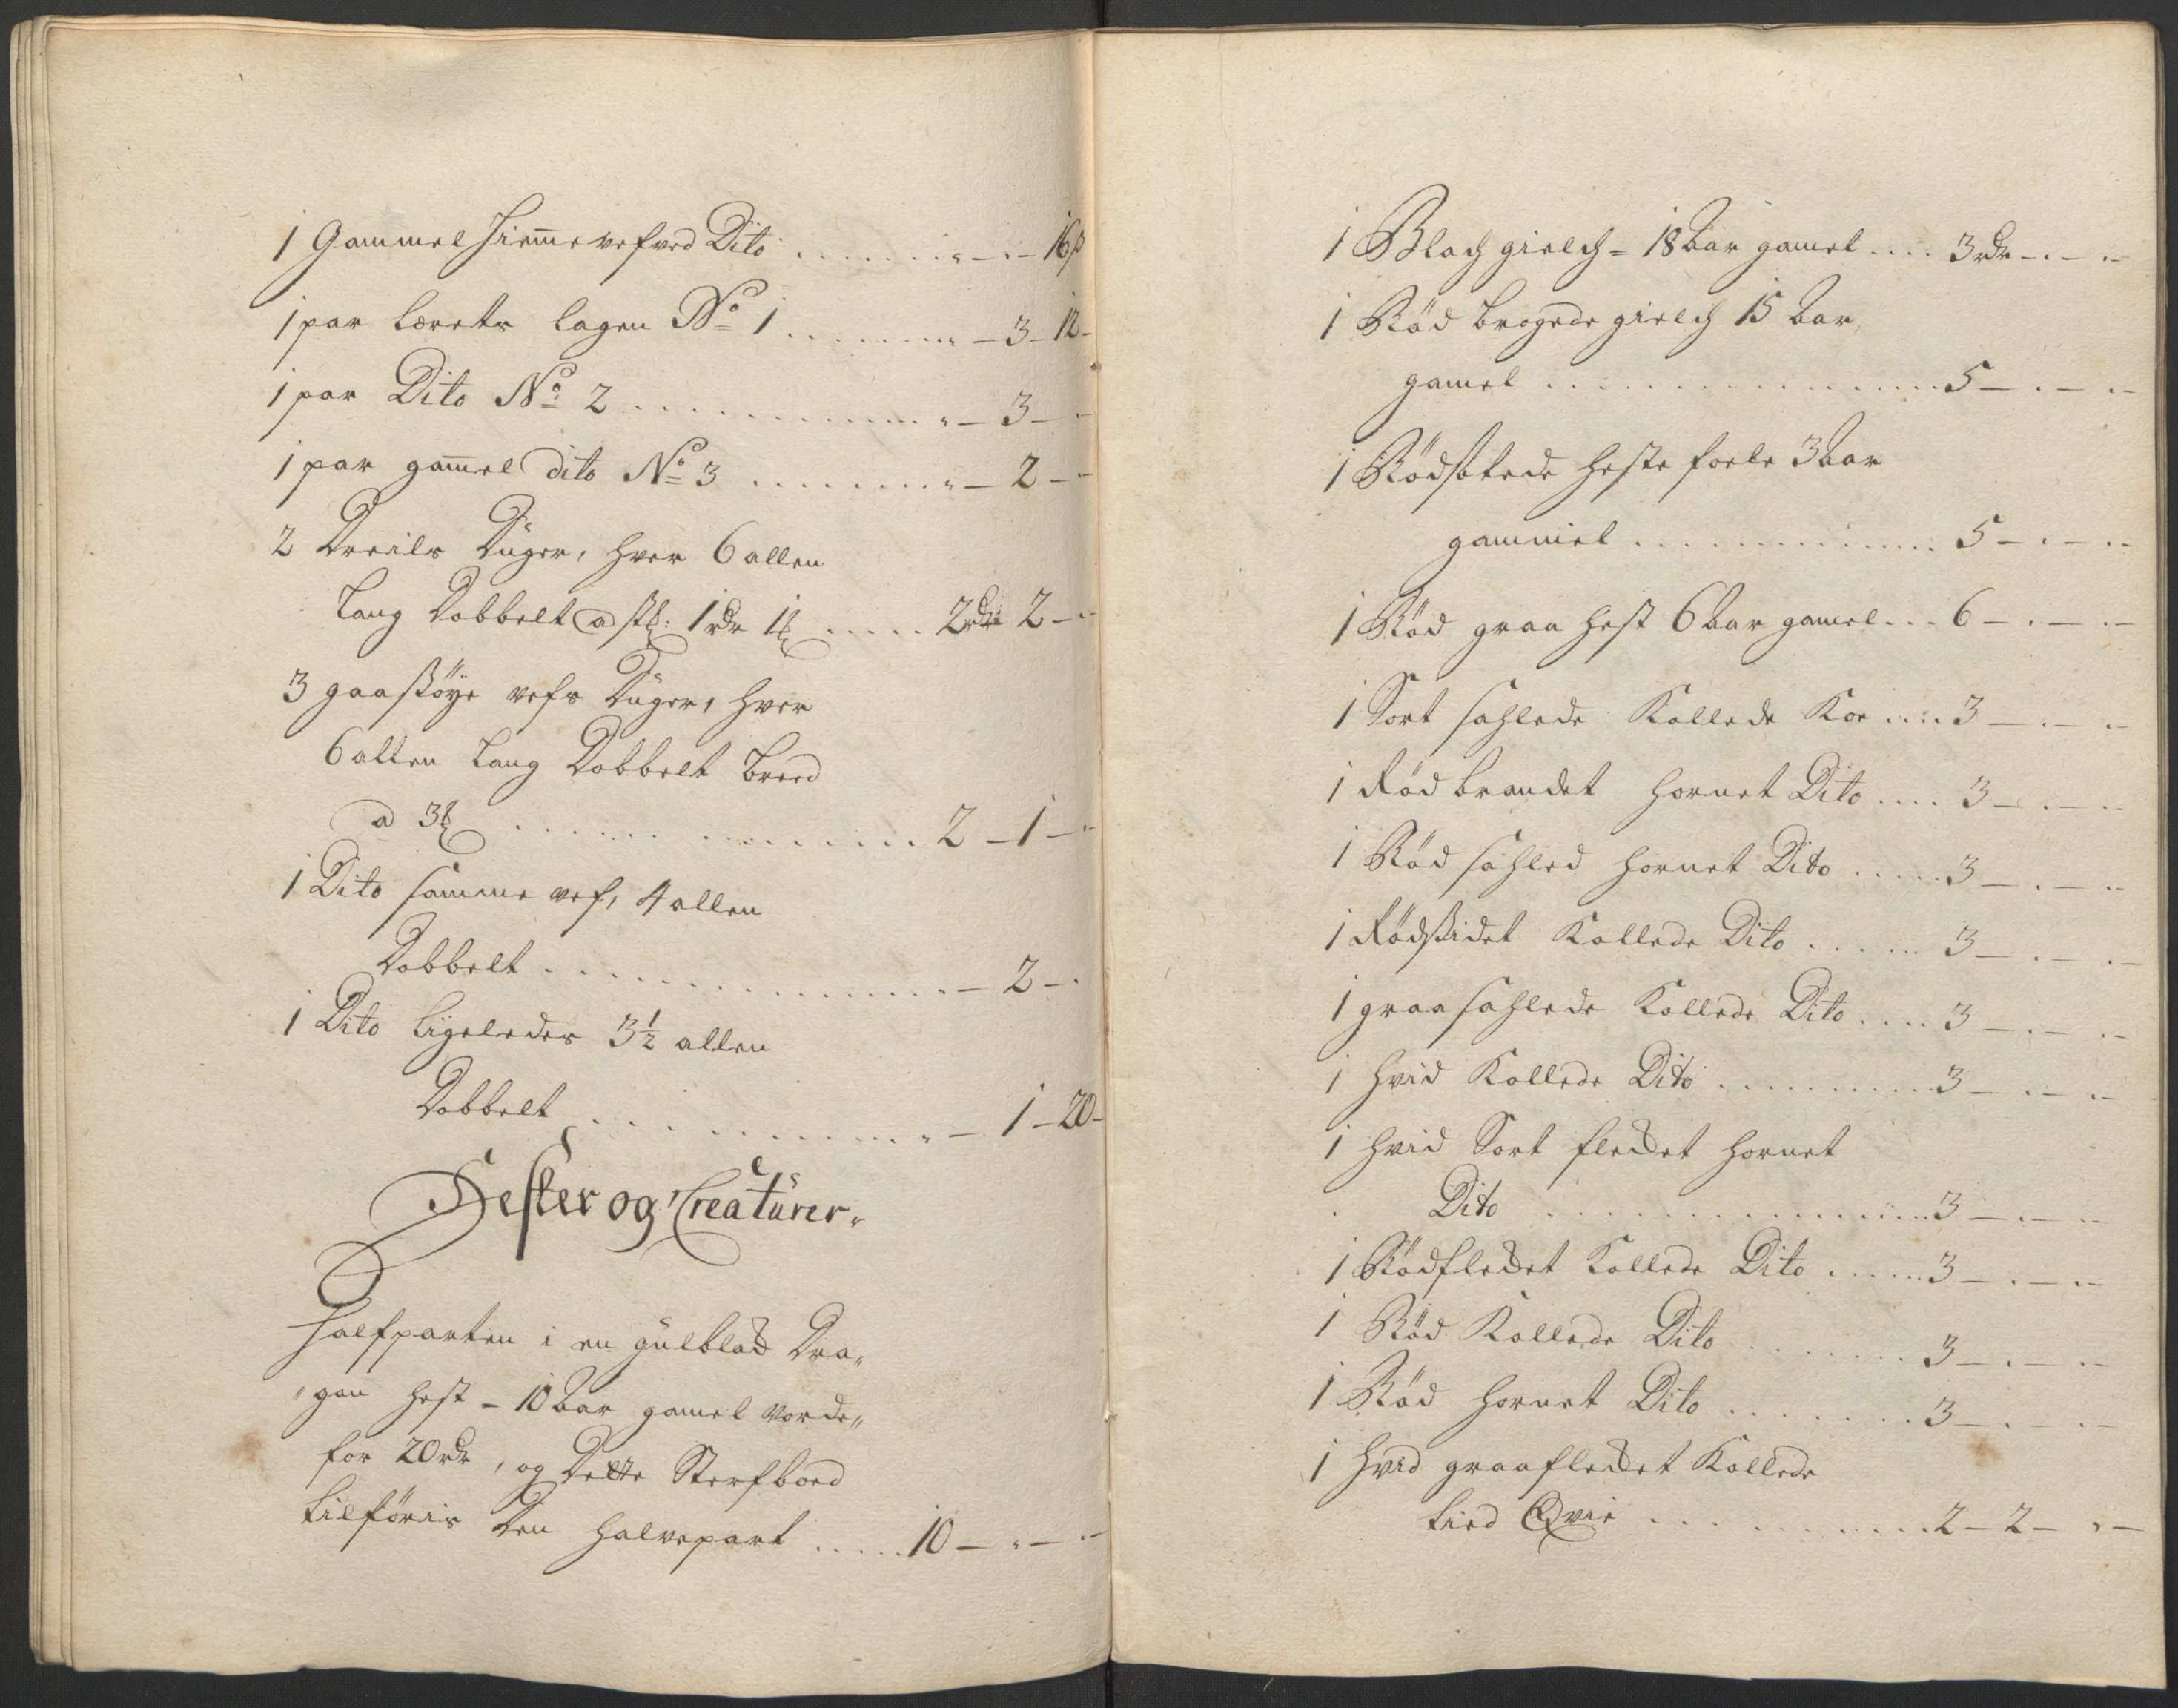 1 Gammel Hiemmevefved Dito ......... „ – „ – 16ß
1 par Lærets Lagen No 1 ......... „ – 3 – 12 –
1 par Dito No 2 ............ „ – 3 – „
1 par gam̄el dito No 3 ......... „ – 2 – „
2 Dreils Duger, hver 6 allen
Lang Dobbelt a stk: 1 rdr 1 ort ..... 2 rdr 2 – „
3 gaasøye vefs Duger, hver
6 allen Lang Dobbelt breed
a 3 ort ............ 2 – 1 – „
1 Dito samme vef, 4 allen
Dobbelt ............ „ – 2 – „
1 Dito Ligeledes 3½ allen
Dobbelt ............ „ – 1 – 20 –
Hester og Creaturer.
Halfparten i en gulblad Dra„
„gon hest – 10 aar gamel vorde„
for 20 rdr, og Dette Sterfboed
tilføris Den halvepart ..... 10 – „ – „
1 Blach gielch = 18 aar gamel .... 3 rdr – „ – „
1 Rød brogede gielch 15 aar
gamel ............ 5 – „ – „
1 Rødsotede heste foele 3 aar
gammel ............ 5 – „ – „
1 Rød graa hest 6 aar gamel ... 6 – „ – „
1 Sort sahlede Kollede Koe .... 3 – „ – „
1 Rød brandet hornet Dito .... 3 – „ – „
1 Rød sahled hornet Dito ..... 3 – „ – „
1 Rødsidet Kollede Dito ...... 3 – „ – „
1 graa sahlede Kollede Dito .... 3 – „ – „
1 hvid Kollede Dito ......... 3 – „ – „
1 hvid Sort flecket hornet
Dito ............ 3 – „ – „
1 Rødflecket Kollede Dito ...... 3 – „ – „
1 Rød Kollede Dito ........ 3 – „ – „
1 Rød hornet Dito ........ 3 – „ – „
1 hvid graaflecket Kollede
tied Qvie ............ 2 – 2 – „ –